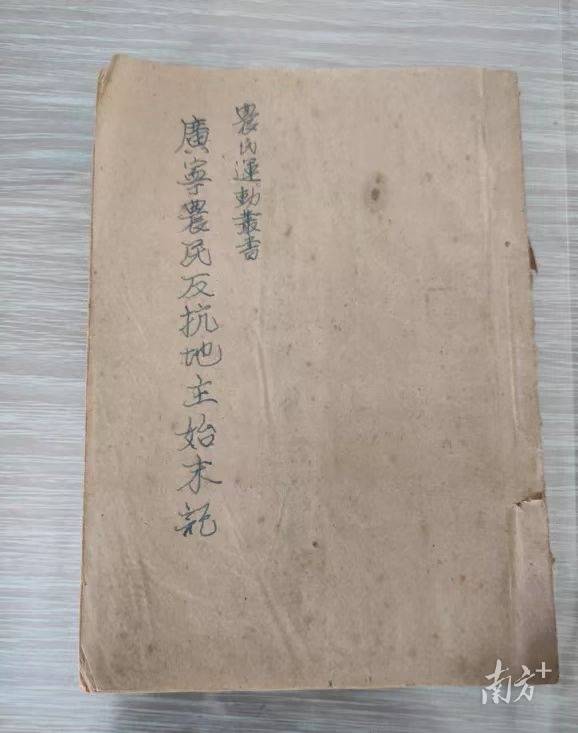 農民運動叢書
廣寧農民反抗地主始末記
南方+